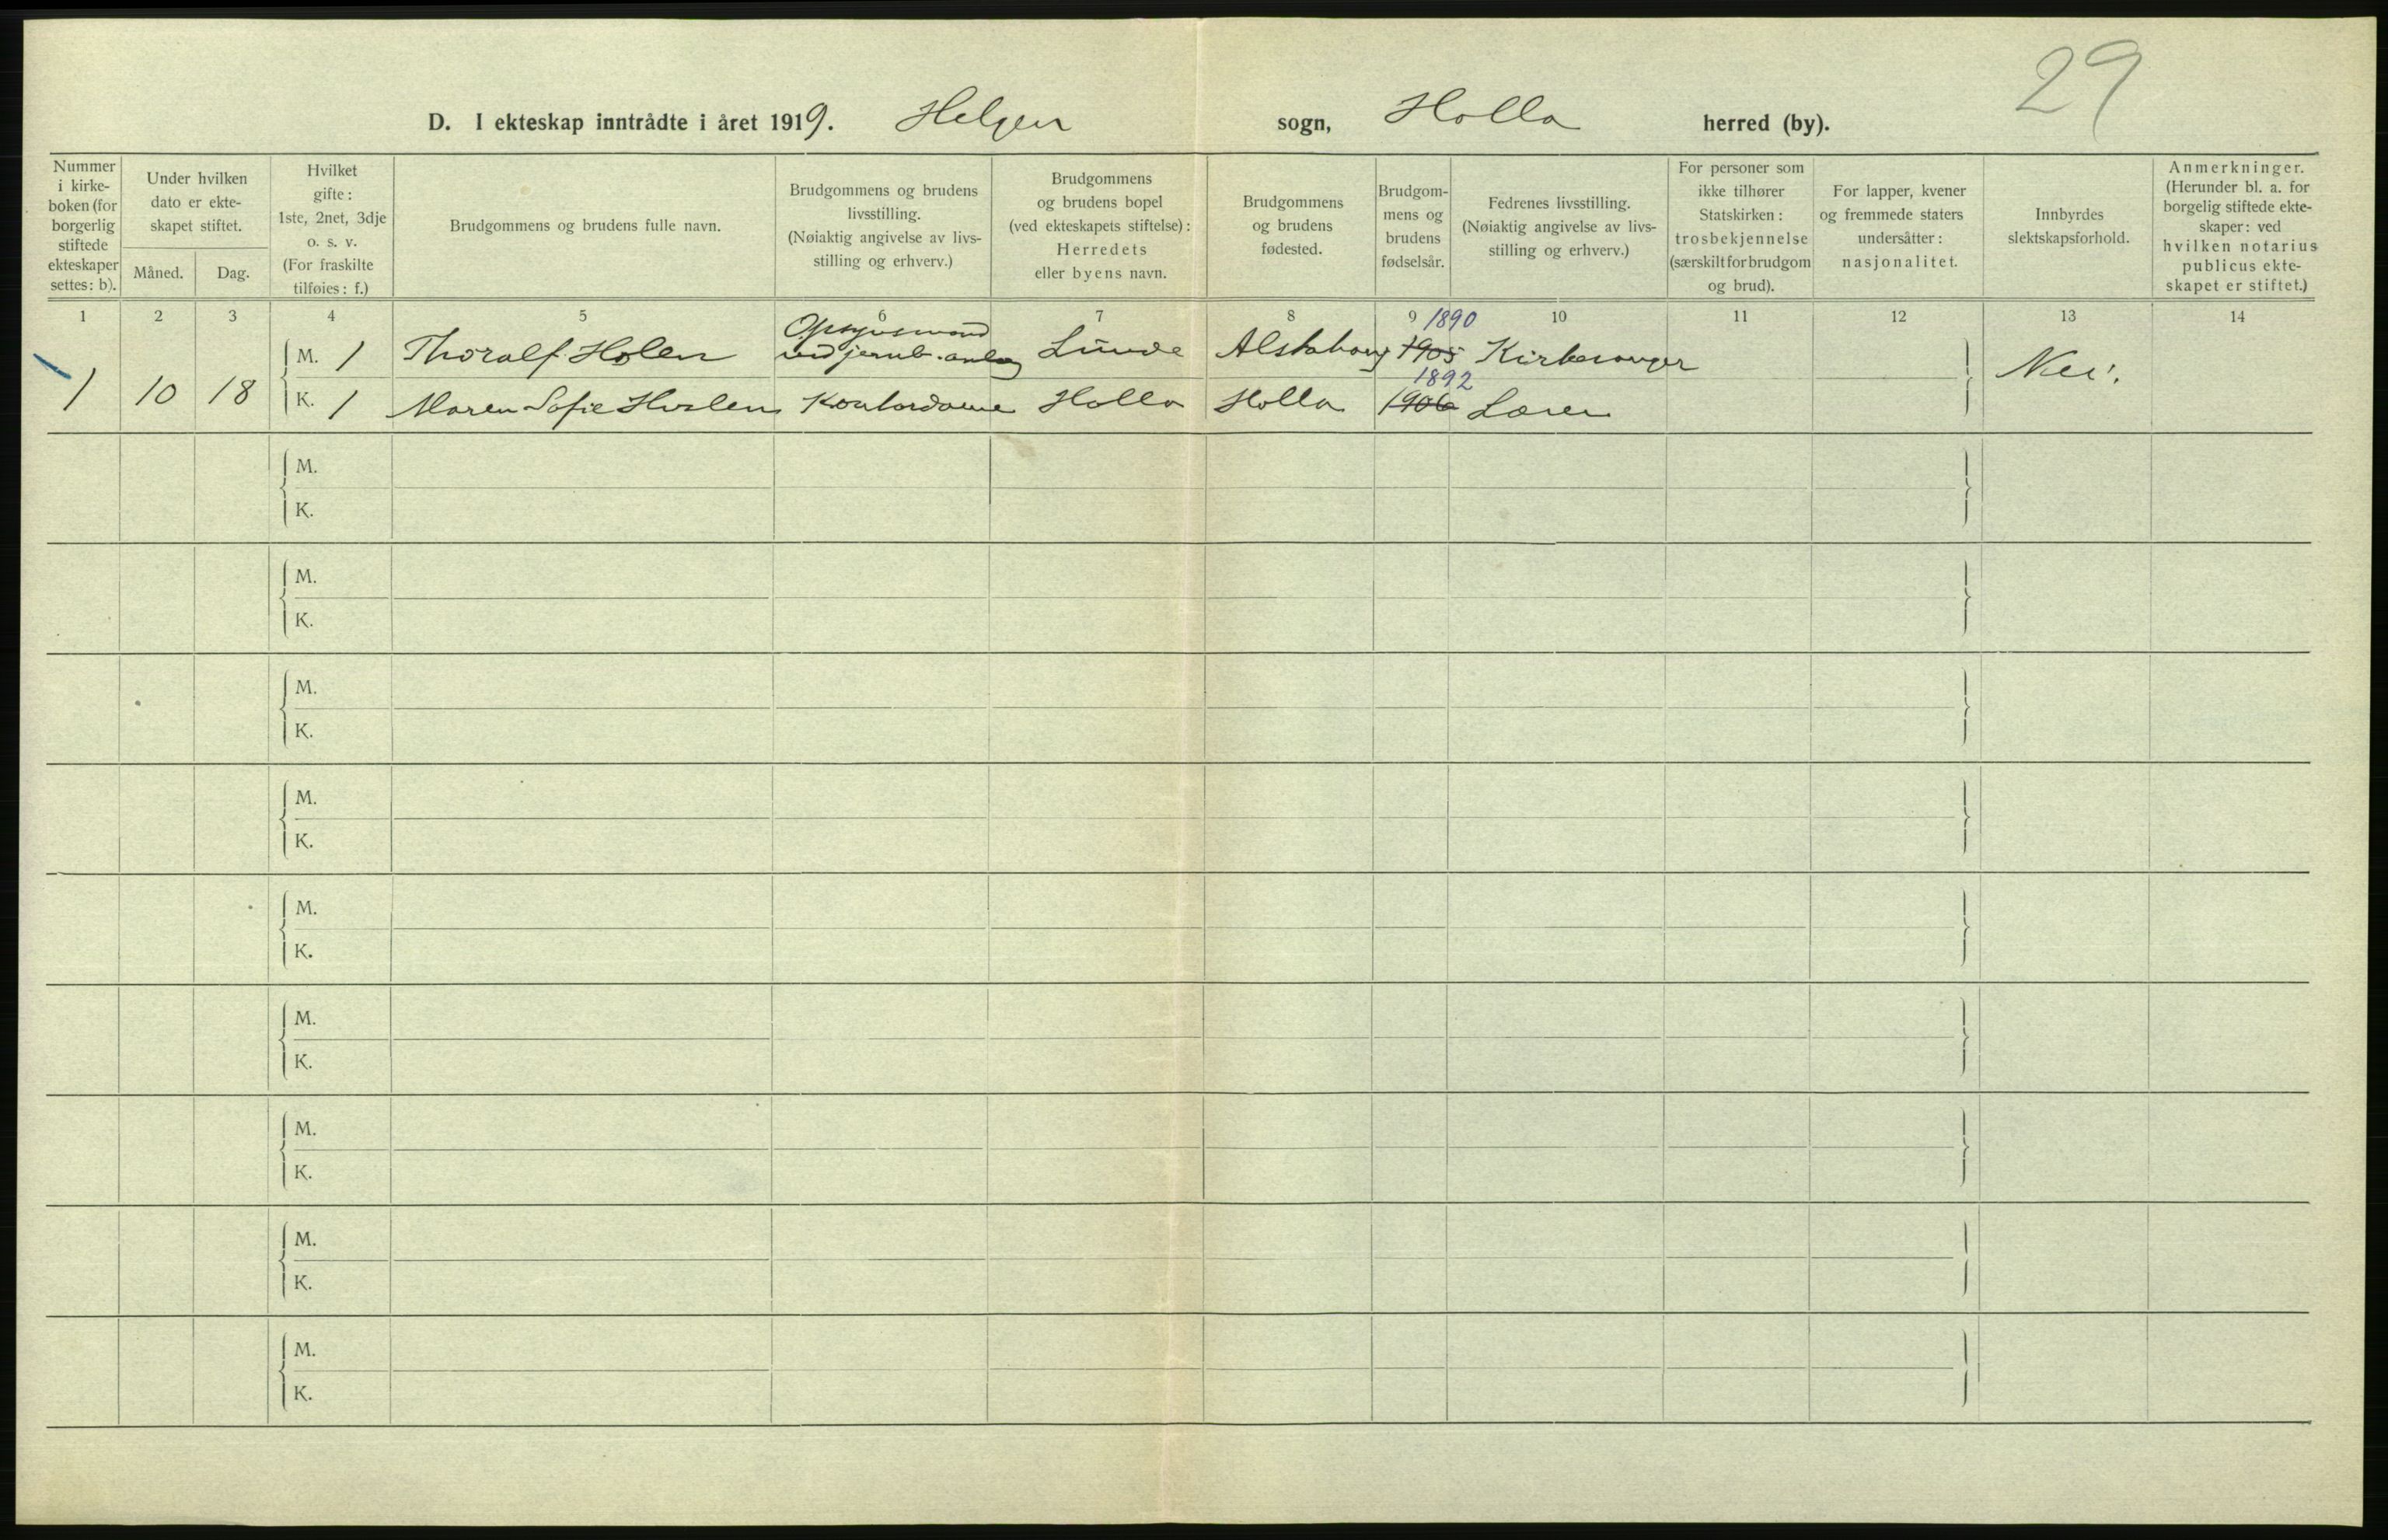 29
D. I ekteskap inntrådte i året 1919. Helgen sogn, Holla herred (by).
Nummer i kirke-boken (for borgerlig stiftede ekteskaper settes: b).
Under hvilken dato er ekte-skapet stiftet.
Måned.
Dag.
Hvilket gifte: 1ste, 2net, 3dje o. s. v. (For fraskilte tilføies: f.)
Brudgommens og brudens fulle navn.
Brudgommens og brudens livsstilling. (Nøiaktig angivelse av livs-stilling og erhverv.)
Brudgommens og brudens bopel (ved ekteskapets stiftelse): Herredets eller byens navn.
Brudgommens og brudens fødested.
Brudgom-mens og brudens fødselsår.
Fedrenes livsstilling. (Nøiaktig angivelse av livs-stilling og erhverv.)
For personer som ikke tilhører Statskirken: trosbekjennelse (særskilt for brudgom og brud).
For lapper, kvener og fremmede staters undersåtter: nasjonalitet.
Innbyrdes slektskapsforhold.
Anmerkninger. (Herunder bl. a. for borgelig stiftede ekte-skaper: ved hvilken notarius publicus ekte-skapet er stiftet.)
1 2 3 4 5 6 7 8 9 10 11 12 13 14
M. 1 Thoralf Holen Opsynsmand ved jernb. anlæg Lunde Alstahaug 1905 1890 Kirkesanger
1 10 18 Nei.
K. 1 Maren Sofie Kontordame Holla Holla 1906 1892 Lærer
M.
K.
M.
K.
M.
K.
M.
K.
M.
K.
M.
K.
M.
K.
M.
K.
M.
K.